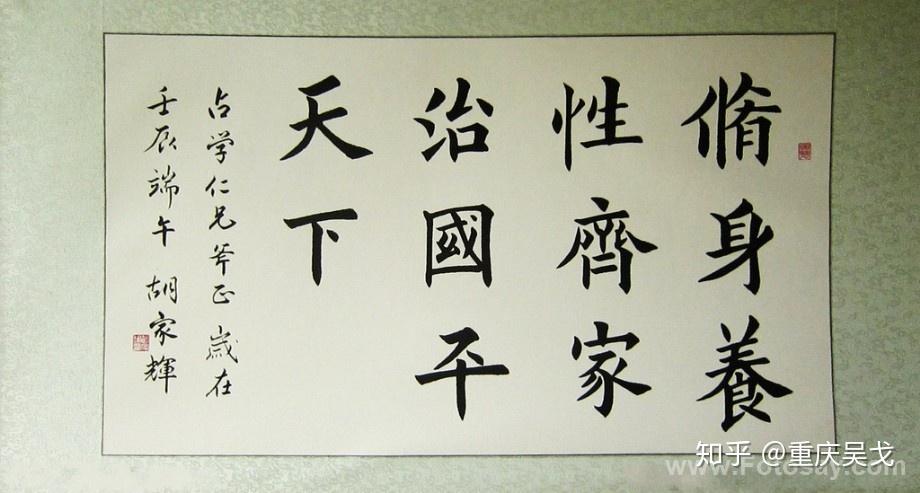 脩身養
性齊家
治國平
天下
占学仁兄斧正 歳在
壬辰端午 胡家輝
知乎 @重庆吴戈
www.Fotosay.com